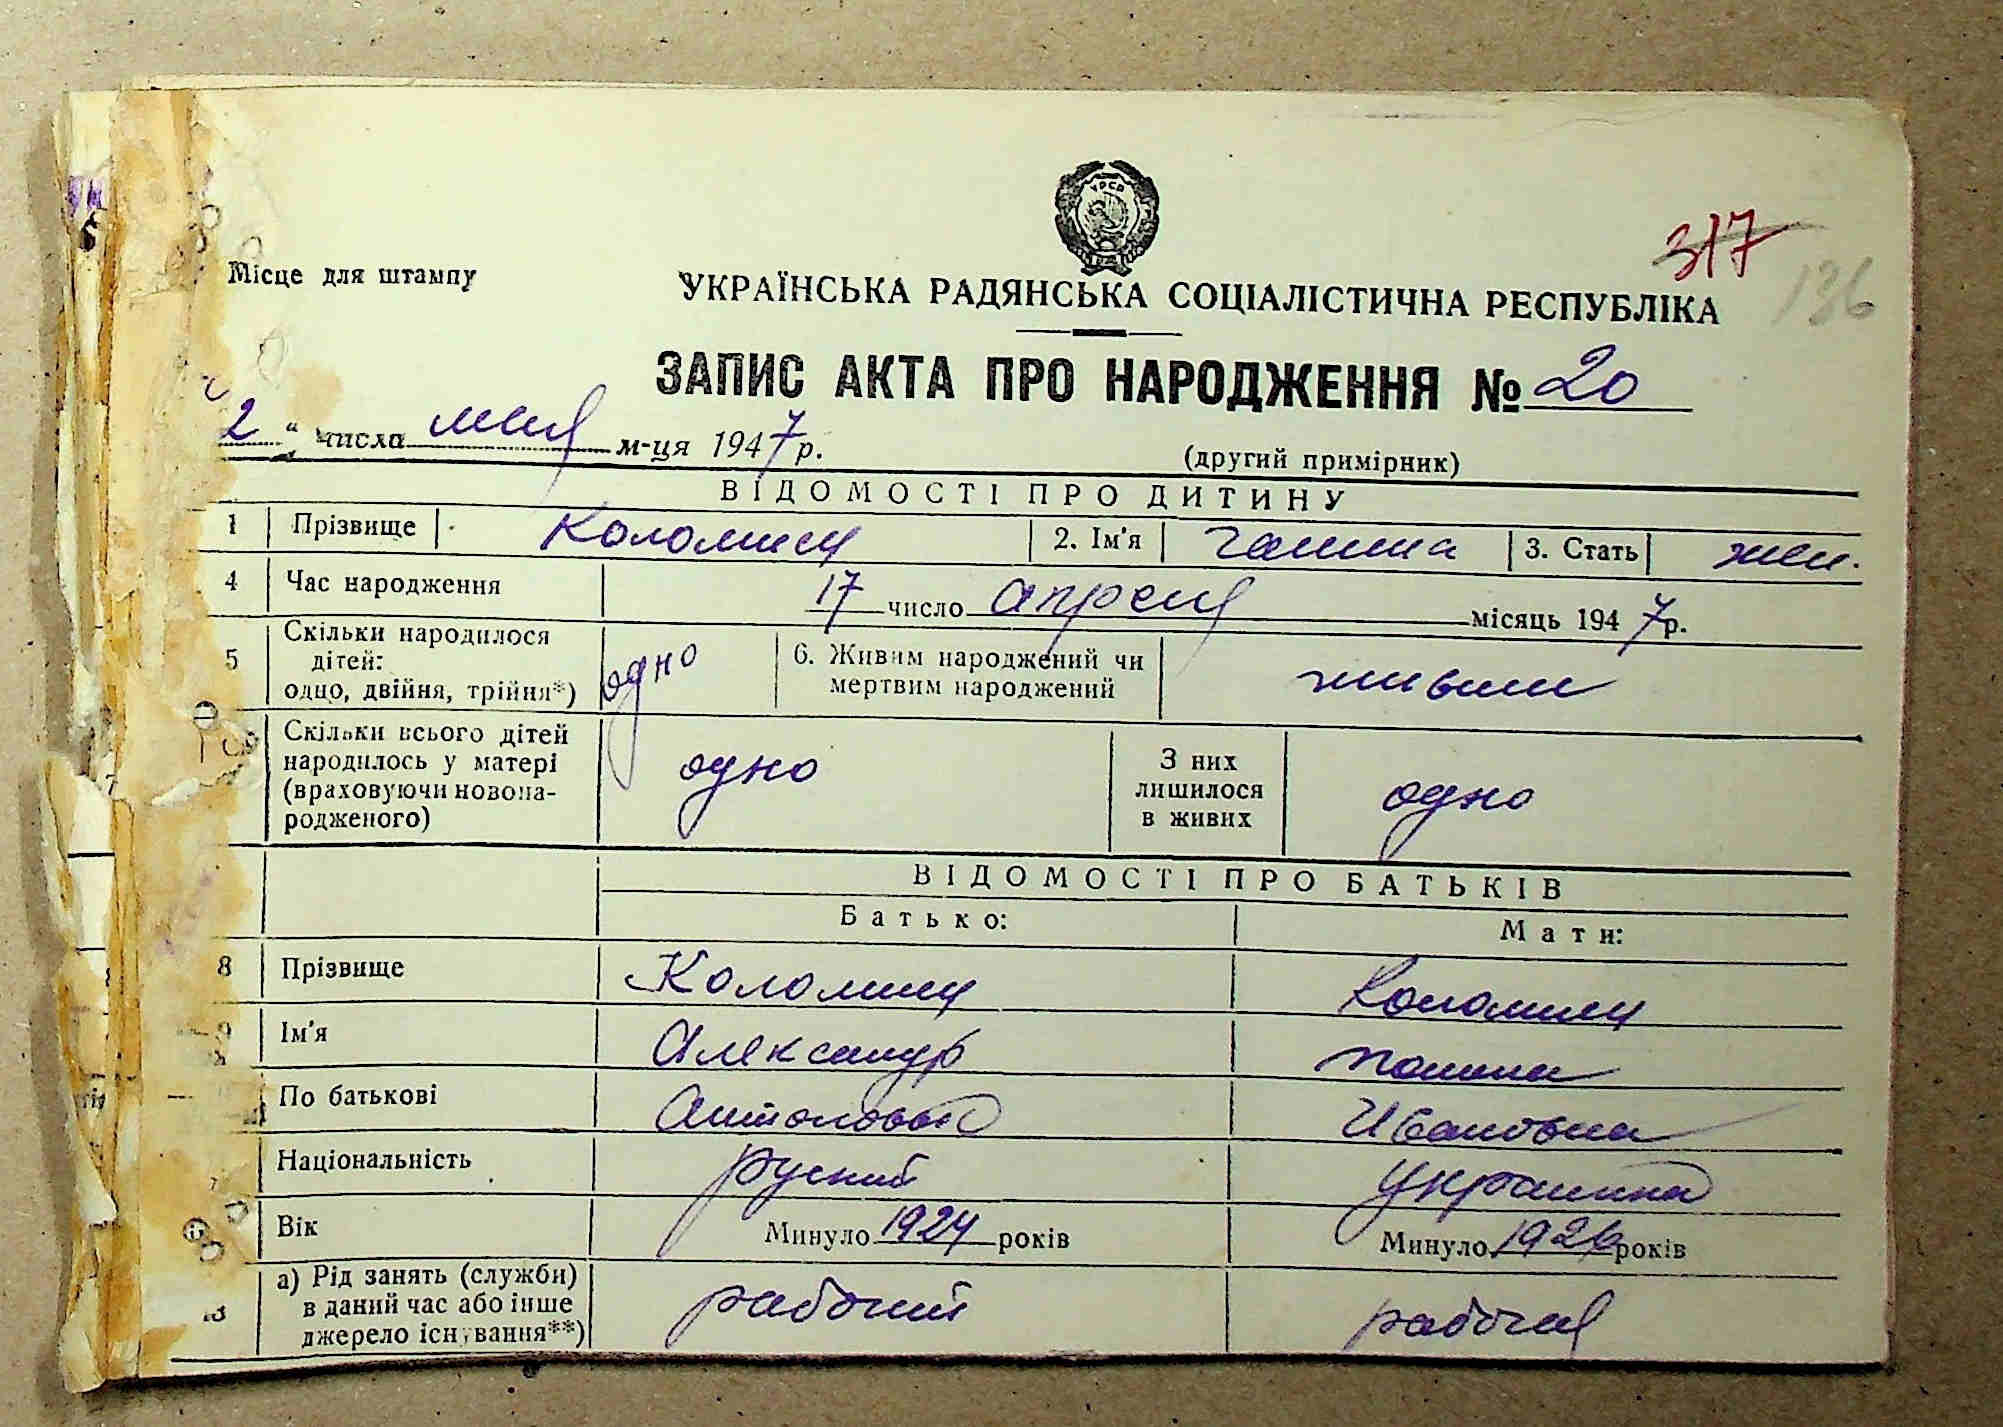 УРСР
317
136
Місце для штампу
УКРАЇНСЬКА РАДЯНСЬКА СОЦІАЛІСТИЧНА РЕСПУБЛІКА
ЗАПИС АКТА ПРО НАРОДЖЕННЯ № 20
2 " числа мая м-ця 1947 р.
(другий примірник)
ВІДОМОСТІ ПРО ДИТИНУ
1 Прізвище Коломиец 2. Ім'я Галина 3. Стать жен.
4 Час народження 17 число апреля місяць 1947 р.
5 Скільки народилося дітей: одно, двійня, трійня*) одно 6. Живим народжений чи мертвим народжений живым
Скільки всього дітей народилось у матері (враховуючи новонародженого) одно З них лишилося в живих одно
ВІДОМОСТІ ПРО БАТЬКІВ
Батько: Мати:
8 Прізвище Коломиец Коломиец
9 Ім'я Александр Полина
По батькові Ивановна
Національність руский украинка
Вік Минуло 1924 років Минуло 1926 років
13 а) Рід занять (служби) в даний час або інше джерело існування**) рабочий рабочая